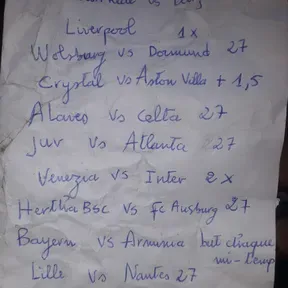 vs
Liverpool 1x
Wolsburg vs Dormund 27
Crystal vs Aston Villa + 1,5
Alaves vs Celta 27
Juv vs Atlanta 27
Venezia vs Inter 2x
Hertha BSC vs Fc Ausburg 27
Bayern vs Arminia but chaque
mi-temp
Lille vs Nantes 27